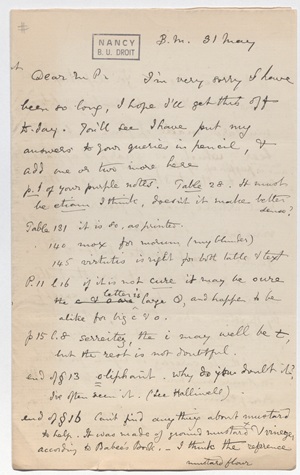 NANCY
B. U. DROIT
B.M. 31 May
Dear M. P.
I'm very sorry I have
been so long, I hope I'll get this off
to-day. You'll see I have put my
answers to your queries in pencil, &
add one or two more here
p.1 of your purple notes. Table 28. It must
be etiam I think, doesn't it make better
sense?
Table 131 it is so, as printed.
140 mox for morum (my blunder)
145 virtutis is right for both table & text
P.11 l.16 if it is not cure it may be oure
the letter is large O, and happen to be
alike for big c & o.
p15 l.8 serreitez, the i may well be t,
but the rest is not doubtful.
end of §13 oliphaunt. Why do you doubt it?
I've often seen it. (See Halliwell)
end of §16 Can't find anything about mustard
to help. It was made of ground mustard & vinegar
according to Babees Book. - I think the reference
mustard flour